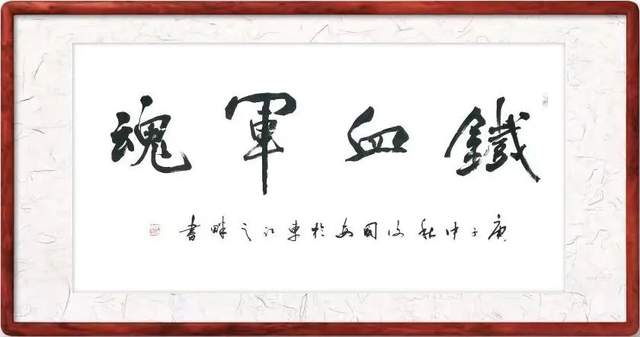 鐵血軍魂
庚子中秋於東江之畔書